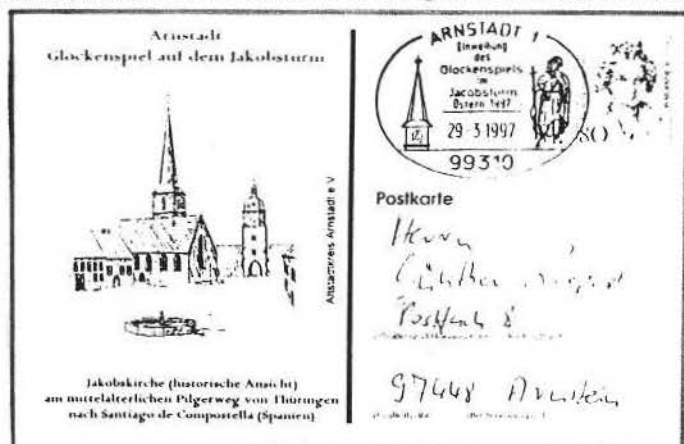 Arnstadt
Glockenspiel auf dem Jakobsturm
Altstadtkreis Arnstadt e.V.
Jakobskirche (historische Ansicht)
am mittelalterlichen Pilgerweg von Thüringen
nach Santiago de Compostella (Spanien)
ARNSTADT 1
Einweihung
des
Glockenspiels
im
Jacobsturm
Ostern 1997
29-3 1997
99310
Postkarte
Herrn
Günther
Postfach 8
97448 Arnstein